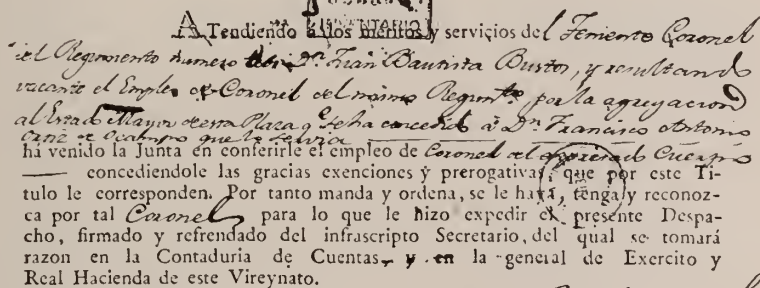 INVENTARIO
ATendiendo a los meritos y servicios del Teniente Coronel
del Regimiento numero dos Dn. Juan Bautista Bustos, y resultando
vacante el Empleo de Coronel del mismo Regimto. por la agregacion
al Estado Mayor de esta Plaza qe. se ha concedido á Dn. Francisco Antonio
Ortiz de Ocampo que le servia
ha venido la Junta en conferirle el empleo de Coronel del expresado Cuerpo
— concediendole las gracias exenciones y prerogativas, que por este Ti-
tulo le corresponden. Por tanto manda y ordena, se le haya, tenga y reconoz-
ca por tal Coronel para lo que le hizo expedir el presente Despa-
cho, firmado y refrendado del infrascripto Secretario, del qual se tomará
razon en la Contaduria de Cuentas, y en la general de Exercito y
Real Hacienda de este Vireynato.